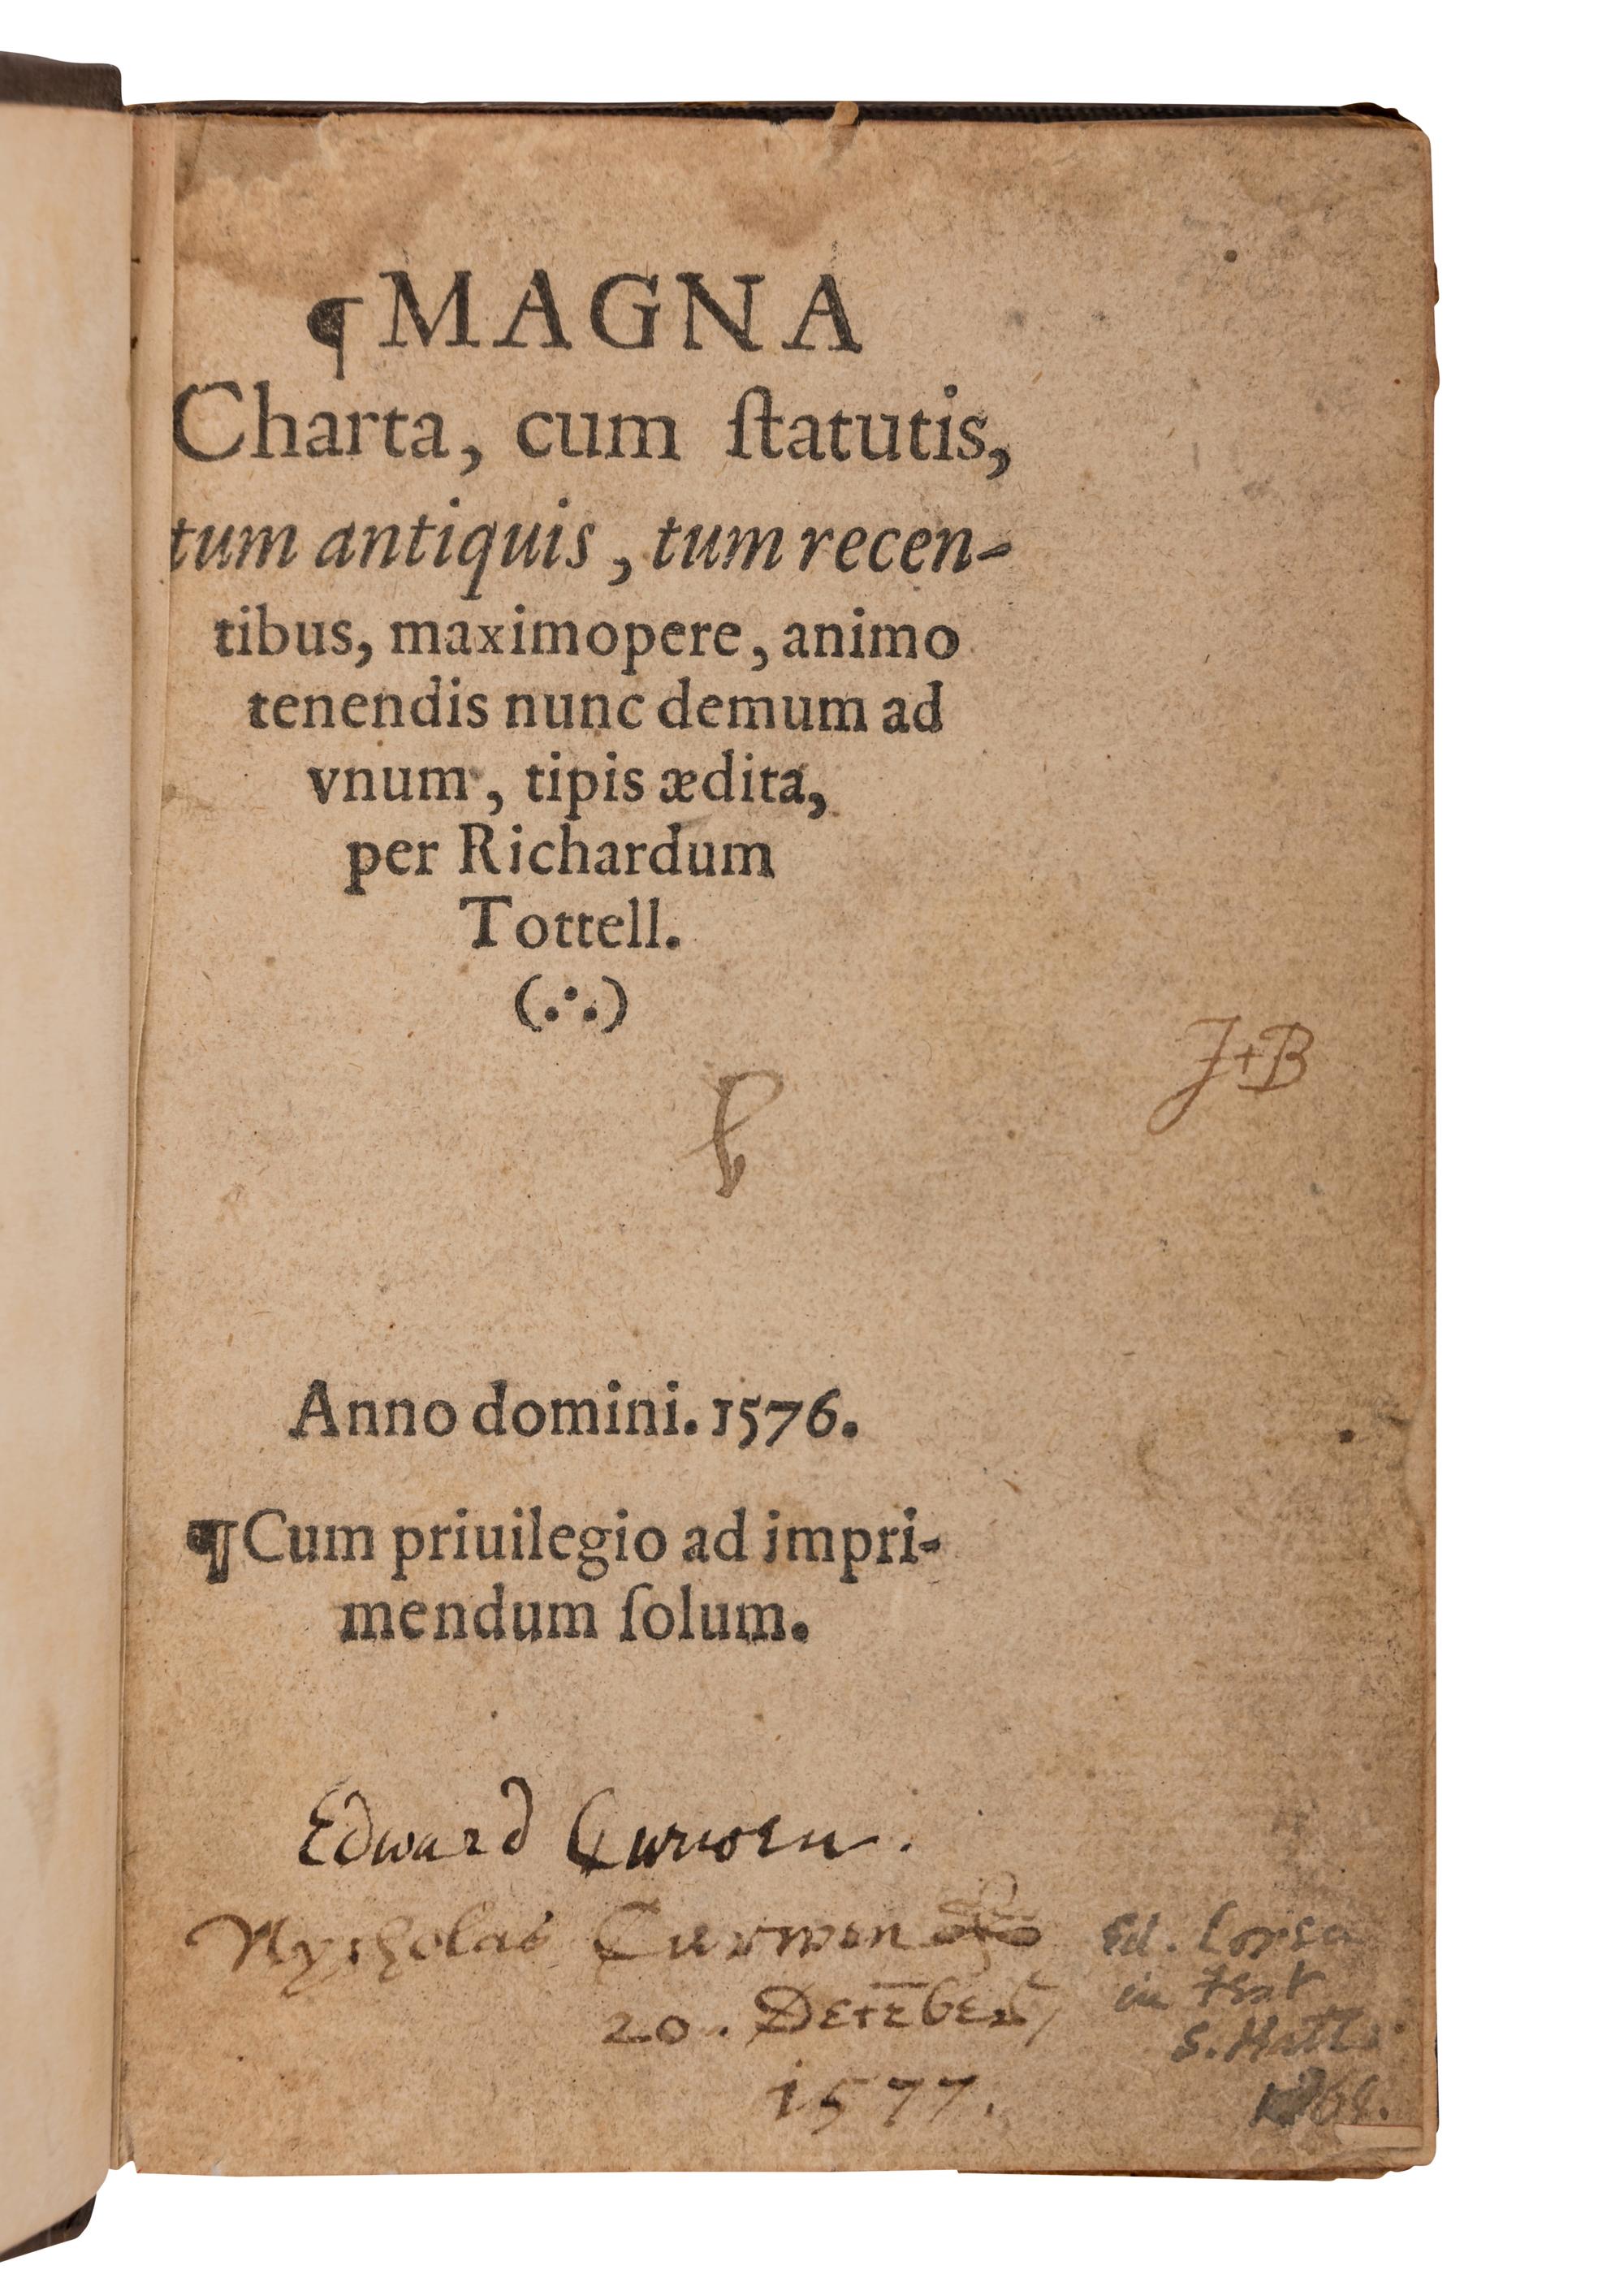 ¶MAGNA
Charta, cum ſtatutis,
tum antiquis, tum recen-
tibus, maximopere, animo
tenendis nunc demum ad
vnum, tipis ædita,
per Richardum
Tottell.
(∴)
J+B
Anno domini. 1576.
¶Cum priuilegio ad impri-
mendum ſolum.
Edward Curwen.
Nycholas Curwen
20. Decēber
1577.
Ed.
in
S.